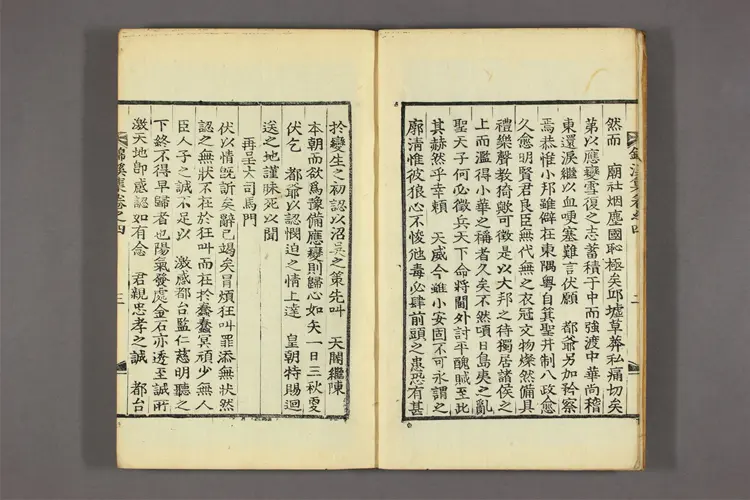 然而 廟社烟塵國恥極矣邱墟草莽私痛切矣
第以應變雪復之志蓄積于中而強渡中華尚稽
東還淚繼以血哽塞難言伏願 都爺另加矜察
焉恭惟小邦雖僻在東隅粤自箕聖斤制八政愈
久愈明賢君良臣無代無之衣冠文物燦然備具
禮樂聲教猗歟可徵是以大邦之待獨居諸侯之
上而濫得小華之稱者久矣不然頃日島夷之亂
聖天子何必徵兵天下命將閫外討平醜賊至此
其赫然乎幸賴 天威今雖小安固不可永謂之
廓清惟彼狼心不悛他毒必肆前頭之患恐有甚
錦溪集卷之四
二
於變生之初認以沼吴之策先叫 天閽繼陳
本朝而欲爲豫備應變則歸心如矢一日三秋更
伏乞 都爺以認憫迫之情上達 皇朝特賜迴
送之地謹昧死以聞
再呈大司馬門
伏以情旣訴矣辭已竭矣冒煩狂叫罪添無狀然
認之無狀不在於狂叫而在於蠢蠢冥頑少無人
臣人子之誠不足以 激感都台監仁慈明聽之
下終不得早歸者也陽氣發處金石亦透至誠所
激天地卽感認如有念 君親忠孝之誠 都台
錦溪集卷之四
三